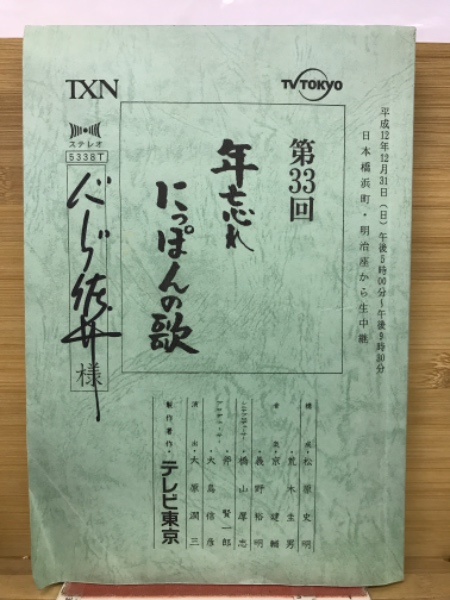 TXN
TV TOKYO
ステレオ
5338T
様
平成12年12月31日(日)午後5時00分~午後9時30分
日本橋浜町・明治座から生中継
第33回
年忘れ
にっぽんの歌
構成・松原史明
荒木圭男
音楽・京建輔
・義野裕明
・橋山厚志
・斧賢一郎
・大島信彦
演出・大原潤三
製作著作・テレビ東京